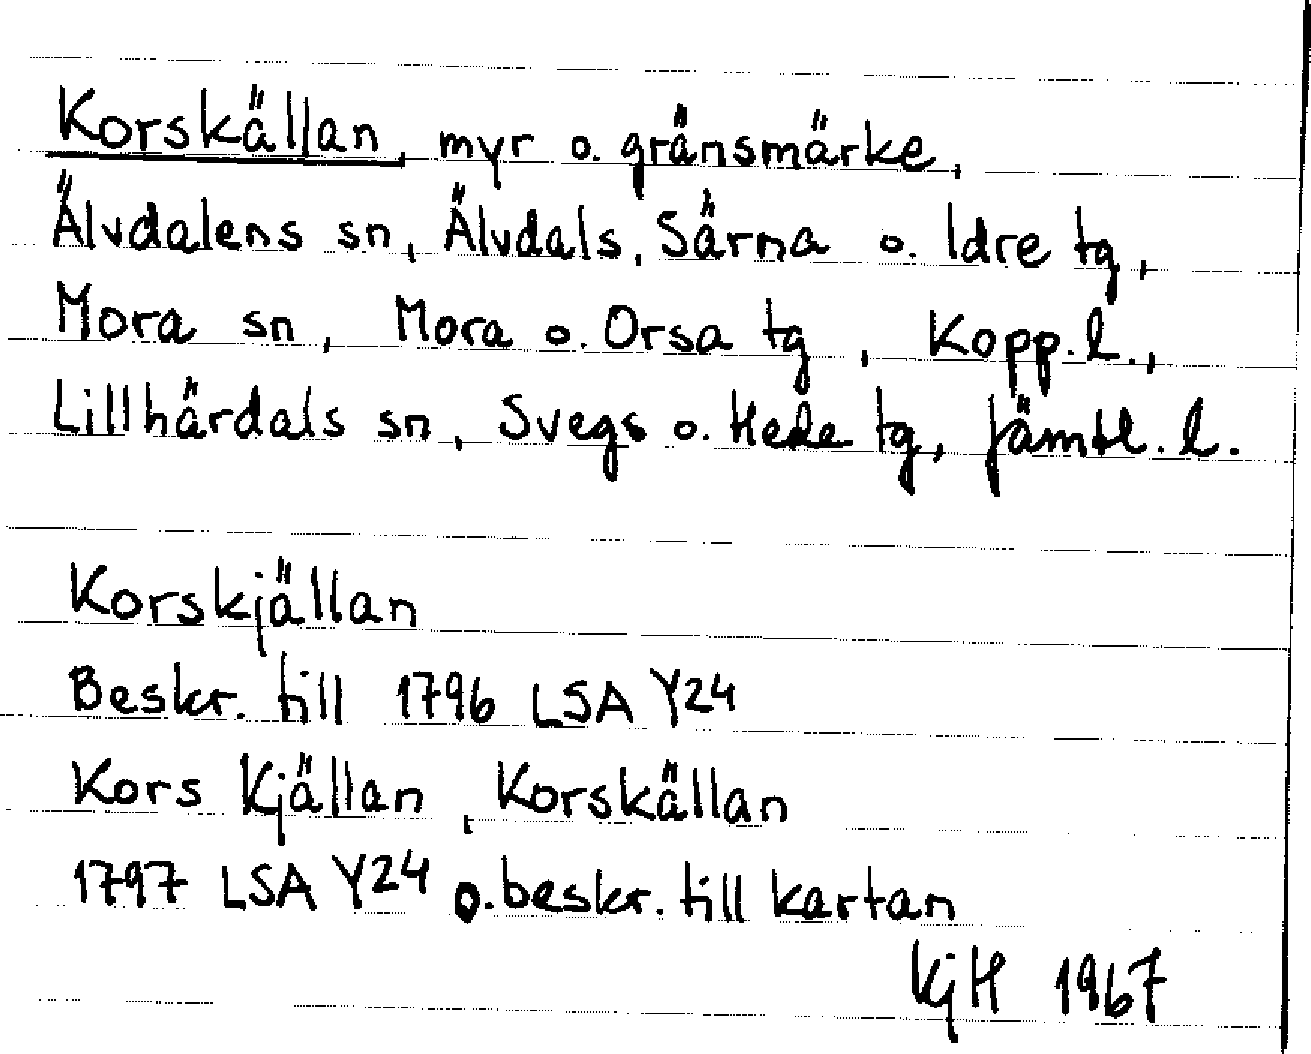 Korskällan, myr o. gränsmärke,
Älvdalens sn, Älvdals, Särna o. Idre tg,
Mora sn, Mora o. Orsa tg, Kopp. l.,
Lillhärdals sn, Svegs o. Hede tg, Jämtl. l.
Korskjällan
Beskr. till 1796 LSA Y24
Kors Kjällan, Korskällan
1797 LSA Y24 o. beskr. till kartan
KjH 1967